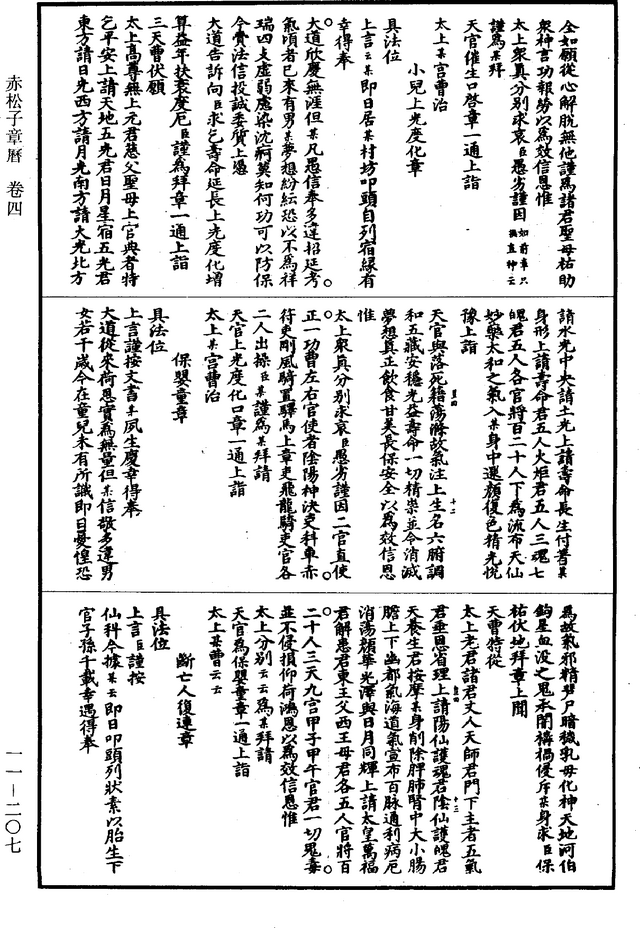 赤松子章曆 卷四
一一－二〇七
全如願從心解脫無他謹爲諸君聖母祐助
衆神言功報勞以爲效信恩惟
太上衆真分別求哀臣愚劣謹因如前章只操直神云
謹爲某拜
天官催生口啓章一通上詣
太上某宮曹治
小兒上光度化章
具法位
上言云某即日居某村坊叩頭自列宿緣有
幸得奉
大道欣慶無涯但某凡愚信奉多違招延考
氣頃者已來有男某夢想紛紜恐以不爲祥
瑞四支虛弱處染沈痾莫知何功可以防保
今賫法信投誠委質上憑
大道告訴向臣求乞壽命延長上光度化增
算益年扶衰度厄臣謹爲拜章一通上詣
三天曹伏願
太上高尊無上元君慈父聖母上官典者特
乞平安上請天地五光君日月星宿五光君
東方請日光西方請月光南方請大光北方
請水光中央請土光上請壽命長生付著某
身形上請壽命君五人火炬君五人三魂七
魄君五人各官將百二十人下爲流布天仙
妙藥太和之氣入某身中還顔復色精光悅
豫上詣
天官與落死籍蕩滌故氣注上生名六腑調
和五藏安穩光益壽命一切精祟並令消滅
夢想真正飲食甘美長保安全以爲效信恩
惟
太上衆真分別求哀臣愚劣謹因二官直使
正一功曹左右官使者陰陽神決吏科車赤
符吏剛風騎置驛馬上章吏飛龍騎吏官各
二人出操臣某謹爲某拜請
天官上光度化口章一通上詣
太上某宮曹治
保嬰童章
具法位
上言謹按文書某夙生慶幸得奉
大道從來荷恩實爲無量但某信敬多違男
女若干歲今在童兒未有所識即日憂惶恐
爲故氣邪精犲尸暗穢乳母化神天地河伯
鉤星血没之鬼承閒構禍侵斥某身求臣保
祐伏地拜章上聞
天曹特從
太上老君諸君丈人天師君門下主者五氣
君垂恩省理上請陽仙護魂君陰仙護魄君
天養生君按摩某身削除脾肺腎中大小腸
膽上下幽都氣海道氣宣布百脉通利病厄
消蕩顏華光澤與日月同輝上請太皇萬福
君解患君東王父西王母君各五人官將百
二十人三天九宮甲子甲午官君一切鬼毒
並不侵損仰荷鴻恩以爲效信恩惟
太上分别云云爲某拜請
天官爲保嬰童章一通上詣
太上某曹云云
斷亡人復連章
具法位
上言臣謹按
仙科今據某云即日叩頭列狀素以胎生下
官子孫千載幸遇得奉